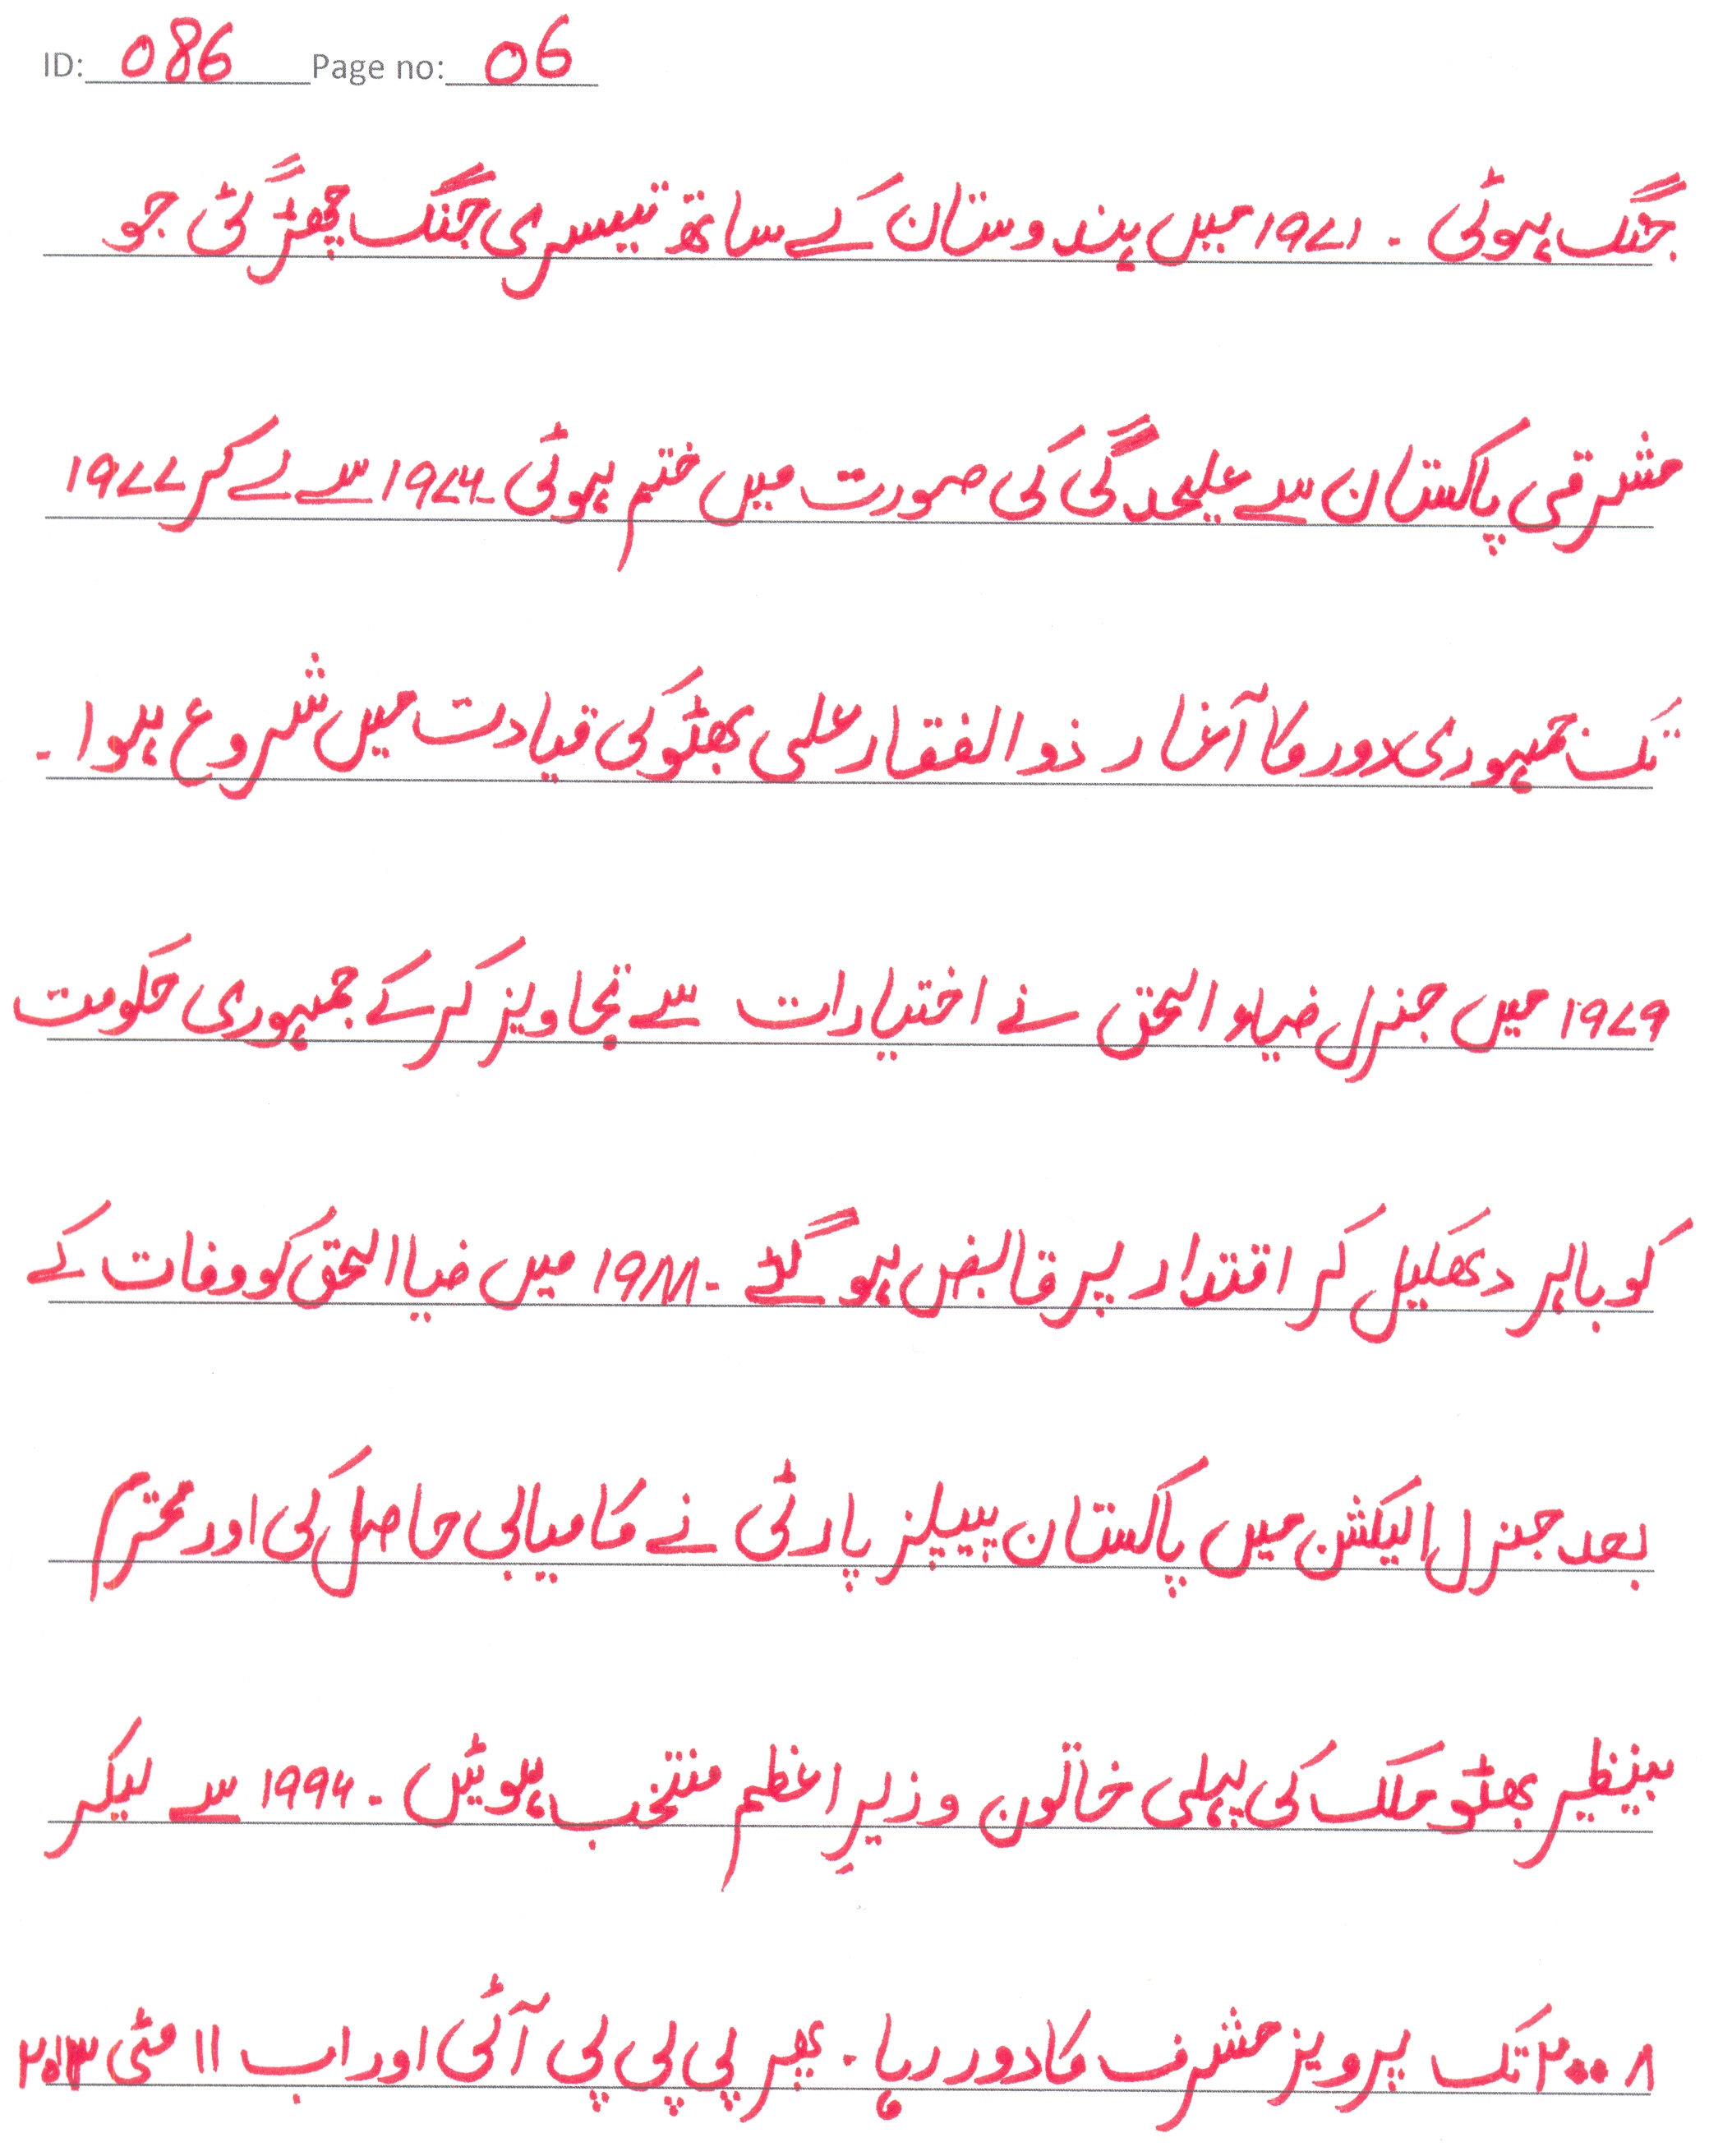 ID: 086 Page no: 06
جنگ ہوئی ۔ ۱۹۷۱ میں ہندوستان کے ساتھ تیسری جنگ چھڑ گئی جو
مشرقی پاکستان سے علیحدگی کی صورت میں ختم ہوئی ۔ ۱۹۷۲ سے لے کر ۱۹۷۷
تک جمہوری دور کا آغار ذوالفقار علی بھٹو کی قیادت میں شروع ہوا ۔
۱۹۷۹ میں جنرل ضیاء الحق نے اختیارات سے تجاویز کرکے جمہوری حکومت
کو باہر دھکیل کر اقتدار پر قابض ہو گئے ۔ ۱۹۸۸ میں ضیا الحق کو وفات کے
بعد جنرل الیکشن میں پاکستان پیپلز پارٹی نے کامیابی حاصل کی اور محترم
بینظیر بھٹو ملک کی پہلی خاتون وزیرِ اعظم منتخب ہوئیں ۔ ۱۹۹۴ سے لیکر
۲۰۰۸ تک پرویز مشرف کا دور رہا ۔ پھر پی پی پی آئی اور اب ۱۱ مئی ۲۰۱۳